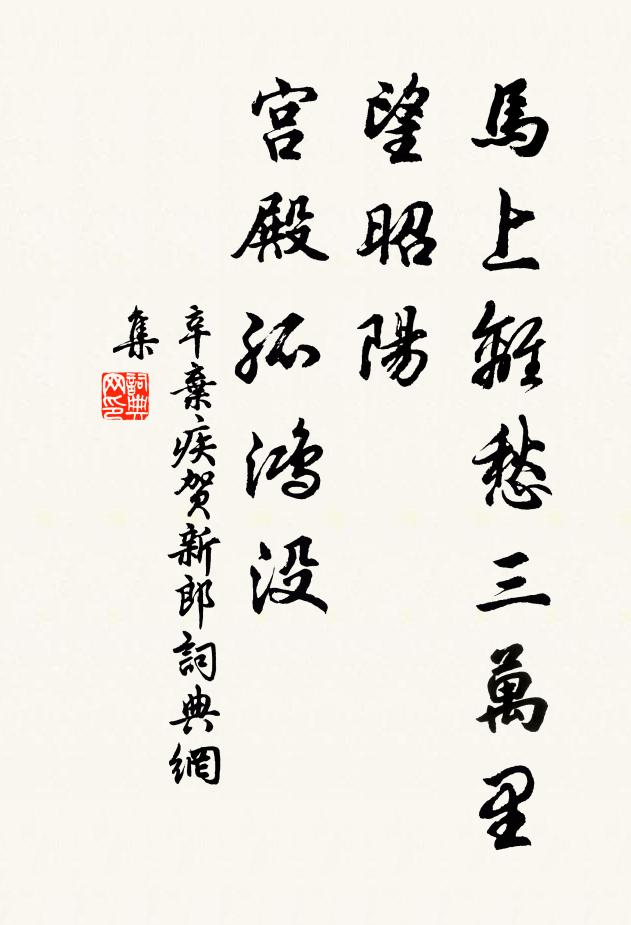 馬上離愁三萬里
望昭陽
宫殿孤鴻没
辛棄疾賀新郎詞典網
集
詞典
网印